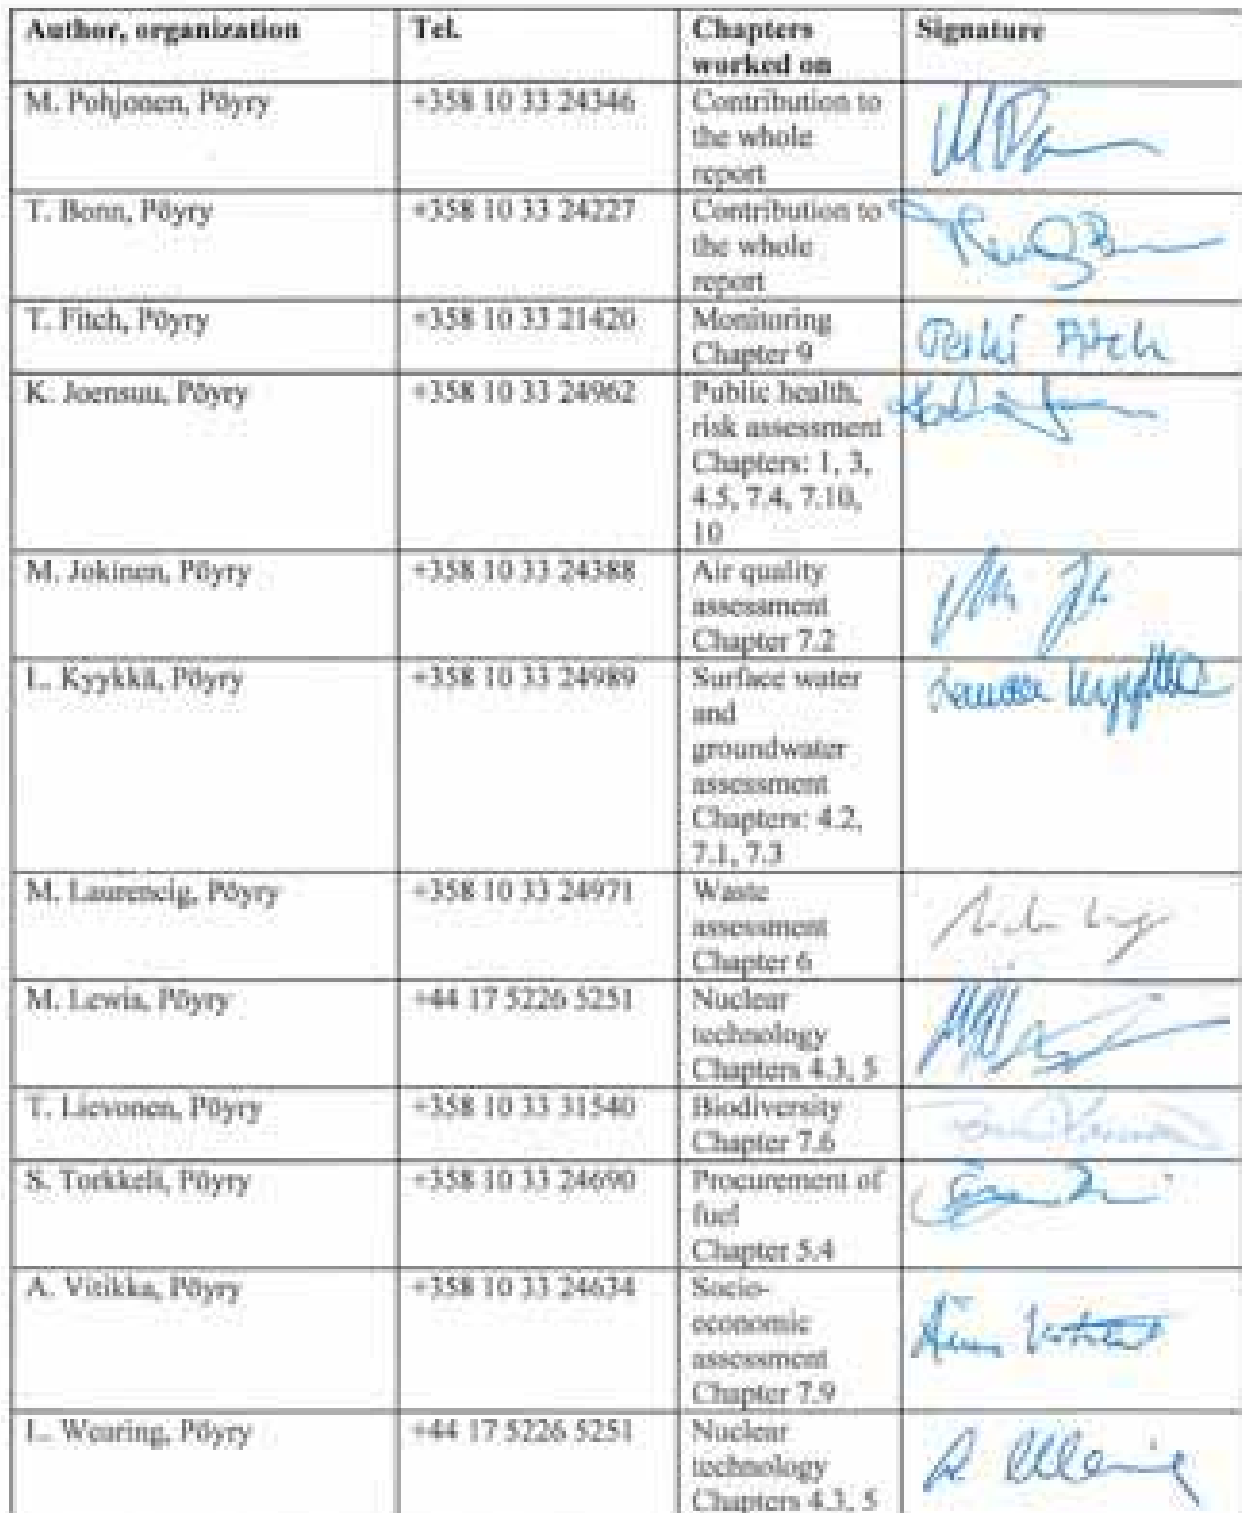 Author, organization Tel. Chapters worked on Signature
M. Pohjonen, Pöyry +358 10 33 24346 Contribution to
the whole
report
T. Bonn, Pöyry +358 10 33 24227 Contribution to
the whole
report
T. Fitch, Pöyry +358 10 33 21420 Monitoring
Chapter 9 Fitch
K. Joensuu, Pöyry +358 10 33 24962 Public health,
risk assessment
Chapters: 1, 3,
4.5, 7.4, 7.10,
10
M. Jokinen, Pöyry +358 10 33 24388 Air quality
assessment
Chapter 7.2
L. Kyykkä, Pöyry +358 10 33 24989 Surface water
and
groundwater
assessment
Chapters: 4.2,
7.1, 7.3
M. Laurencig, Pöyry +358 10 33 24971 Waste
assessment
Chapter 6
M. Lewis, Pöyry +44 17 5226 5251 Nuclear
technology
Chapters 4.3, 5
T. Lievonen, Pöyry +358 10 33 31540 Biodiversity
Chapter 7.6
S. Torkkeli, Pöyry +358 10 33 24690 Procurement of
fuel
Chapter 5.4
A. Vitikka, Pöyry +358 10 33 24634 Socio-
economic
assessment
Chapter 7.9
L. Wearing, Pöyry +44 17 5226 5251 Nuclear
technology
Chapters 4.3, 5